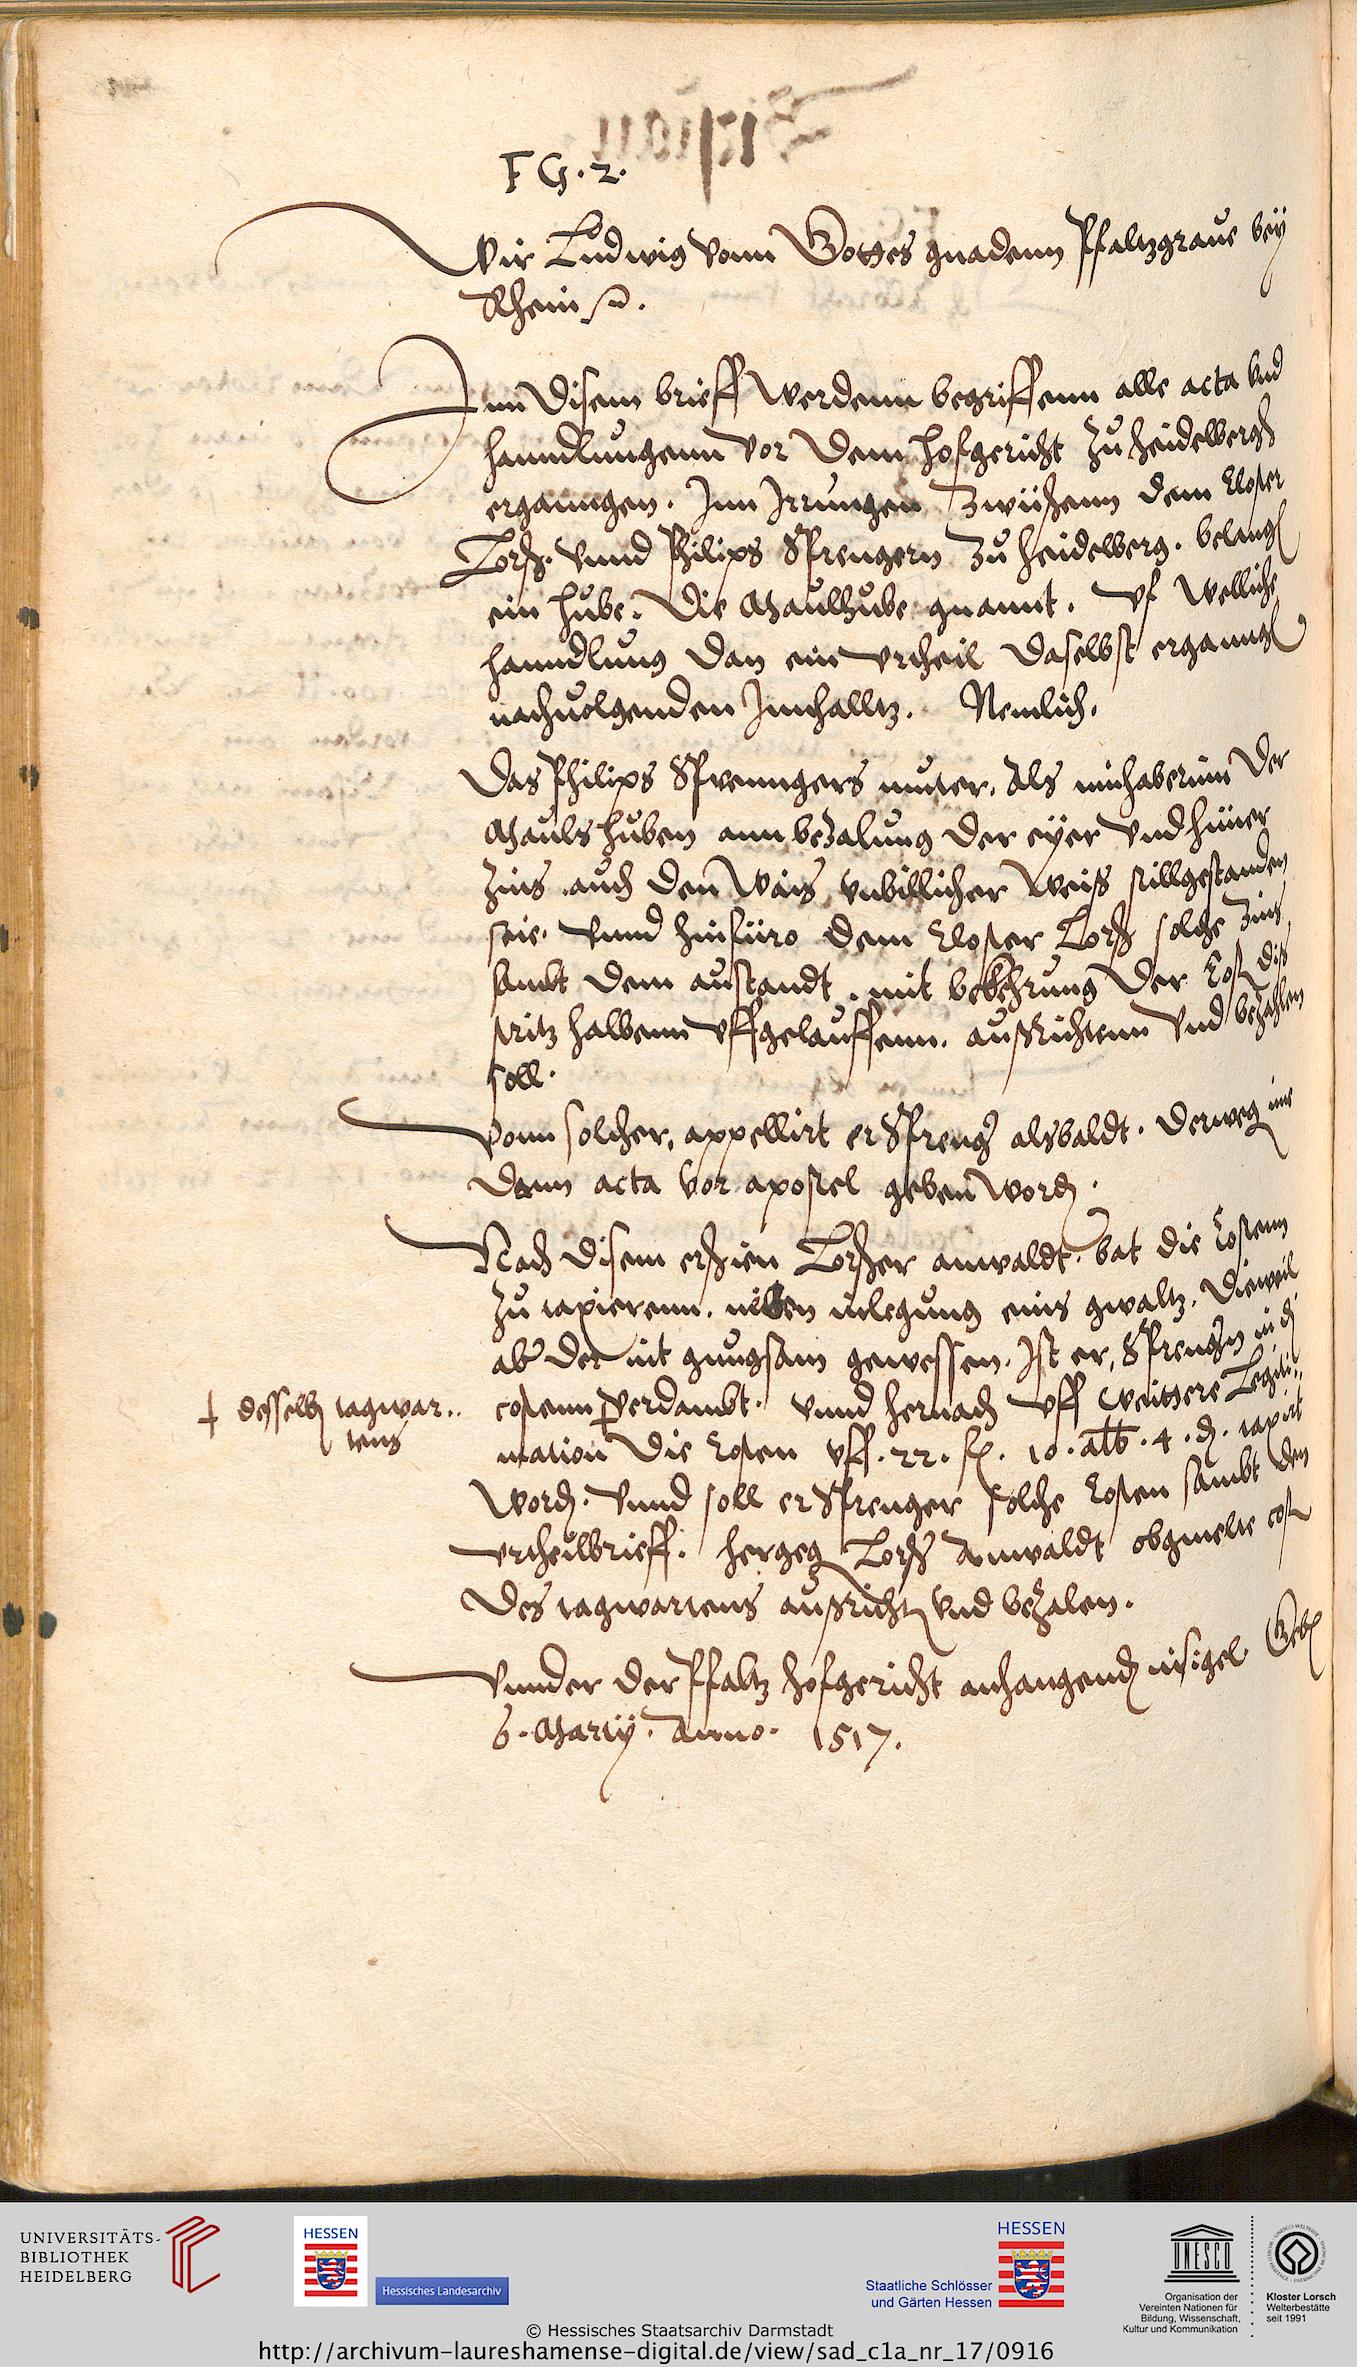 F G. 2.
Wir Ludwig vonn Gottes gnadenn Pfaltzgraue bey
Rhein
Inn disem brieff werdenn begriffenn alle acta vnd
hanndlungenn vor dem hofgericht zu heidelbergk
erganngen. Inn Irrungen zwüschenn dem Closter
Lorsch. vnnd Philips Sprengern zu heidelberg. belang
ein hube. die Maulhube gnannt. vf welliche
hanndlung dan ein vrtheil daselbst erganng
nachuolgenden Innhalltz. Nemlich.
Das Philips Sprenngers muter. als innhaberinn der
Mauls huben ann bezalung der eyer vnd hüner
zins auch den Wais vnbillicher weiß stillgestanden
seie. vnnd hinfüro dem Closter Lorsch solche zins
sambt dem austandt. mit bekehrung der Cost diß
stritz halbenn vffgelauffenn. außrichtenn vnd bezahlen
soll.
Vonn solcher, appellirt er Spreng alsbaldt. derweg ime
dann acta vor apostel geben word.
Nach disem erschien Lorscher anwaldt. bat die Costenn
zu taxierenn. neben inlegung eins gwaltz. Dieweil
aber der nit gnugsam gewessen. Ist er, Sprengern in d
† desselb tagwar..
tens
costenn verdambt. vnnd hernach vff weittere Legiti..
mation die Costen vff. 22. fl. 10. alb. 4. d. taxirt
word. vnnd soll er Sprenger solche Costen sambt dem
vrtheilbrieff. hergeg Lorsch Anwaldt obgmelte cost
des tagwartens außricht vnd bezalen.
Vnnder der Pfaltz hofgericht anhangend insigel. Geb
6. Martij. Anno. 1517.
UNIVERSITÄTS-
BIBLIOTHEK
HEIDELBERG
HESSEN
Hessisches Landesarchiv
HESSEN
Staatliche Schlösser
und Gärten Hessen
UNESCO
Organisation der
Vereinten Nationen für
Bildung, Wissenschaft,
Kultur und Kommunikation
Kloster Lorsch
Welterbestätte
seit 1991
© Hessisches Staatsarchiv Darmstadt
http://archivum-laureshamense-digital.de/view/sad_c1a_nr_17/0916